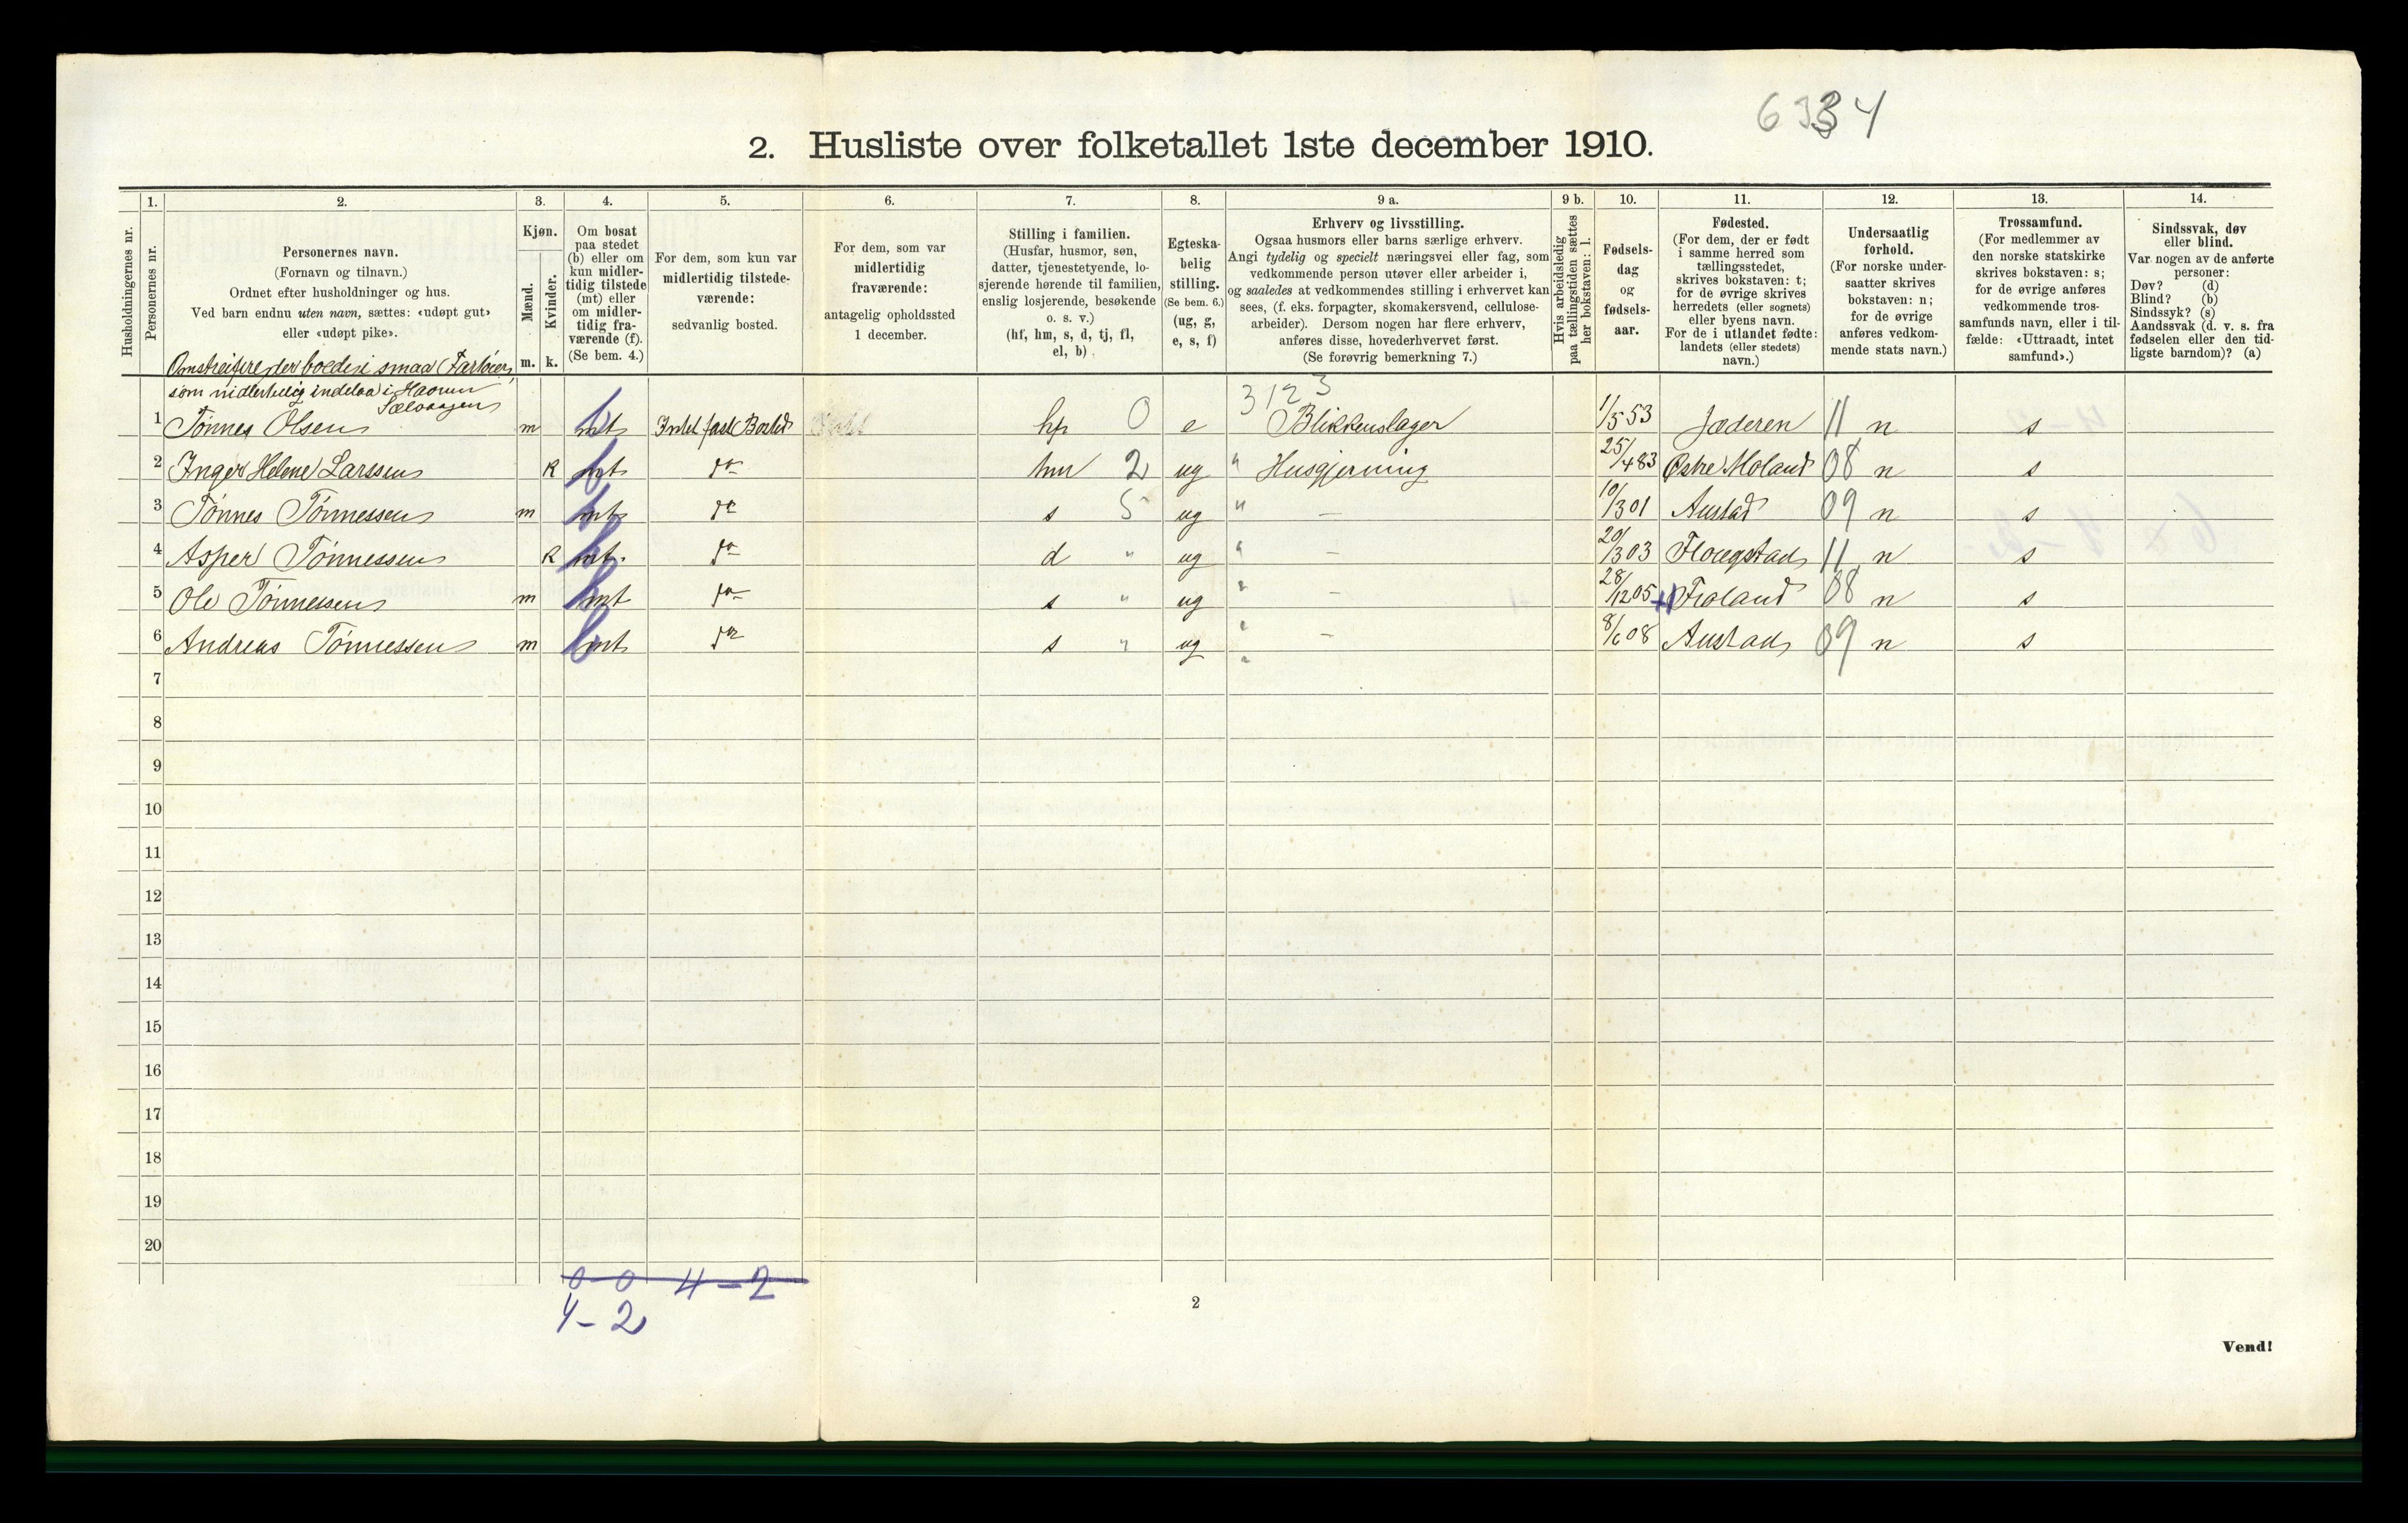 6334
2. Husliste over folketallet 1ste december 1910.
Husholdningernes nr.
1.
Personernes nr.
2.
Personernes navn.
(Fornavn og tilnavn.)
Ordnet efter husholdninger og hus.
Ved barn endnu uten navn, sættes: «udøpt gut»
eller «udøpt pike».
3.
Kjøn.
Mænd.
Kvinder.
m. k.
4.
Om bosat
paa stedet
(b) eller om
kun midler-
tidig tilstede
(mt) eller
om midler-
tidig fra-
værende (f).
(Se bem. 4.)
5.
For dem, som kun var
midlertidig tilstede-
værende:
sedvanlig bosted.
6.
For dem, som var
midlertidig
fraværende:
antagelig opholdssted
1 december.
7.
Stilling i familien.
(Husfar, husmor, søn,
datter, tjenestetyende, lo-
sjerende hørende til familien,
enslig losjerende, besøkende
o. s. v.)
(hf, hm, s, d, tj, fl,
el, b)
8.
Egteska-
belig
stilling.
(Se bem. 6.)
(ug, g,
e, s, f)
9 a.
Erhverv og livsstilling.
Ogsaa husmors eller barns særlige erhverv.
Angi tydelig og specielt næringsvei eller fag, som
vedkommende person utøver eller arbeider i,
og saaledes at vedkommendes stilling i erhvervet kan
sees, (f. eks. forpagter, skomakersvend, cellulose-
arbeider). Dersom nogen har flere erhverv,
anføres disse, hovederhvervet først.
(Se forøvrig bemerkning 7.)
9 b.
Hvis arbeidsledig
paa tællingstiden sættes
her bokstaven: l.
10.
Fødsels-
dag
og
fødsels-
aar.
11.
Fødested.
(For dem, der er født
i samme herred som
tællingsstedet,
skrives bokstaven: t;
for de øvrige skrives
herredets (eller sognets)
eller byens navn.
For de i utlandet fødte:
landets (eller stedets)
navn.)
12.
Undersaatlig
forhold.
(For norske under-
saatter skrives
bokstaven: n;
for de øvrige
anføres vedkom-
mende stats navn.)
13.
Trossamfund.
(For medlemmer av
den norske statskirke
skrives bokstaven: s;
for de øvrige anføres
vedkommende tros-
samfunds navn, eller i til-
fælde: «Uttraadt, intet
samfund».)
14.
Sindssvak, døv
eller blind.
Var nogen av de anførte
personer:
Døv? (d)
Blind? (b)
Sindssyk? (s)
Aandssvak (d. v. s. fra
fødselen eller den tid-
ligste barndom)? (a)
Omstreifere der boede i smaa Fartøier,
som midlertidig indelaa i Havnen
3123
1 Tønnes Olsen m mt Intet fast Bosted hf 0 e Blikkenslager 1/5 53 Jæderen 11 n s
2 Inger Helene Larssen k mt do hm 2 ug " Husgjerning 25/4 83 Østre Moland 08 n s
3 Tønnes Tønnessen m mt do s 5 ug " — 10/3 01 Austad 09 n s
4 Asper Tønnessen k mt. do d " ug " — 20/3 03 Floegstad 11 n s
5 Ole Tønnessen m mt do s " ug " — 28/12 05 Froland 08 n s
6 Andreas Tønnessen m mt do s " ug " — 8/6 08 Austad 09 n s
7
8
9
10
11
12
13
14
15
16
17
18
19
20
0 0 4-2
4-2
2
Vend!